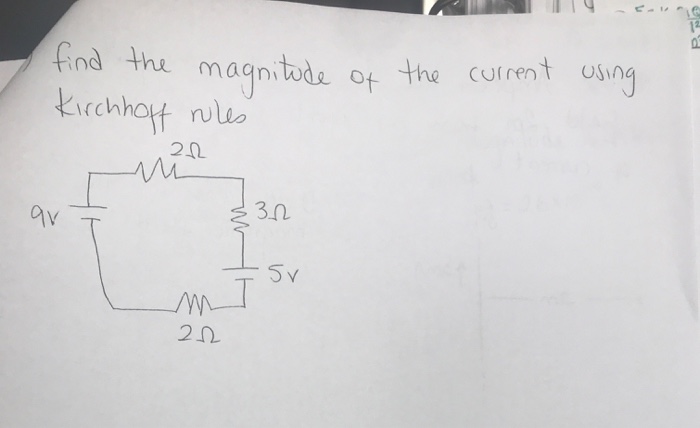 find the magnitude of the current using
Kirchhoff rules
2Ω
9v
3Ω
5v
2Ω